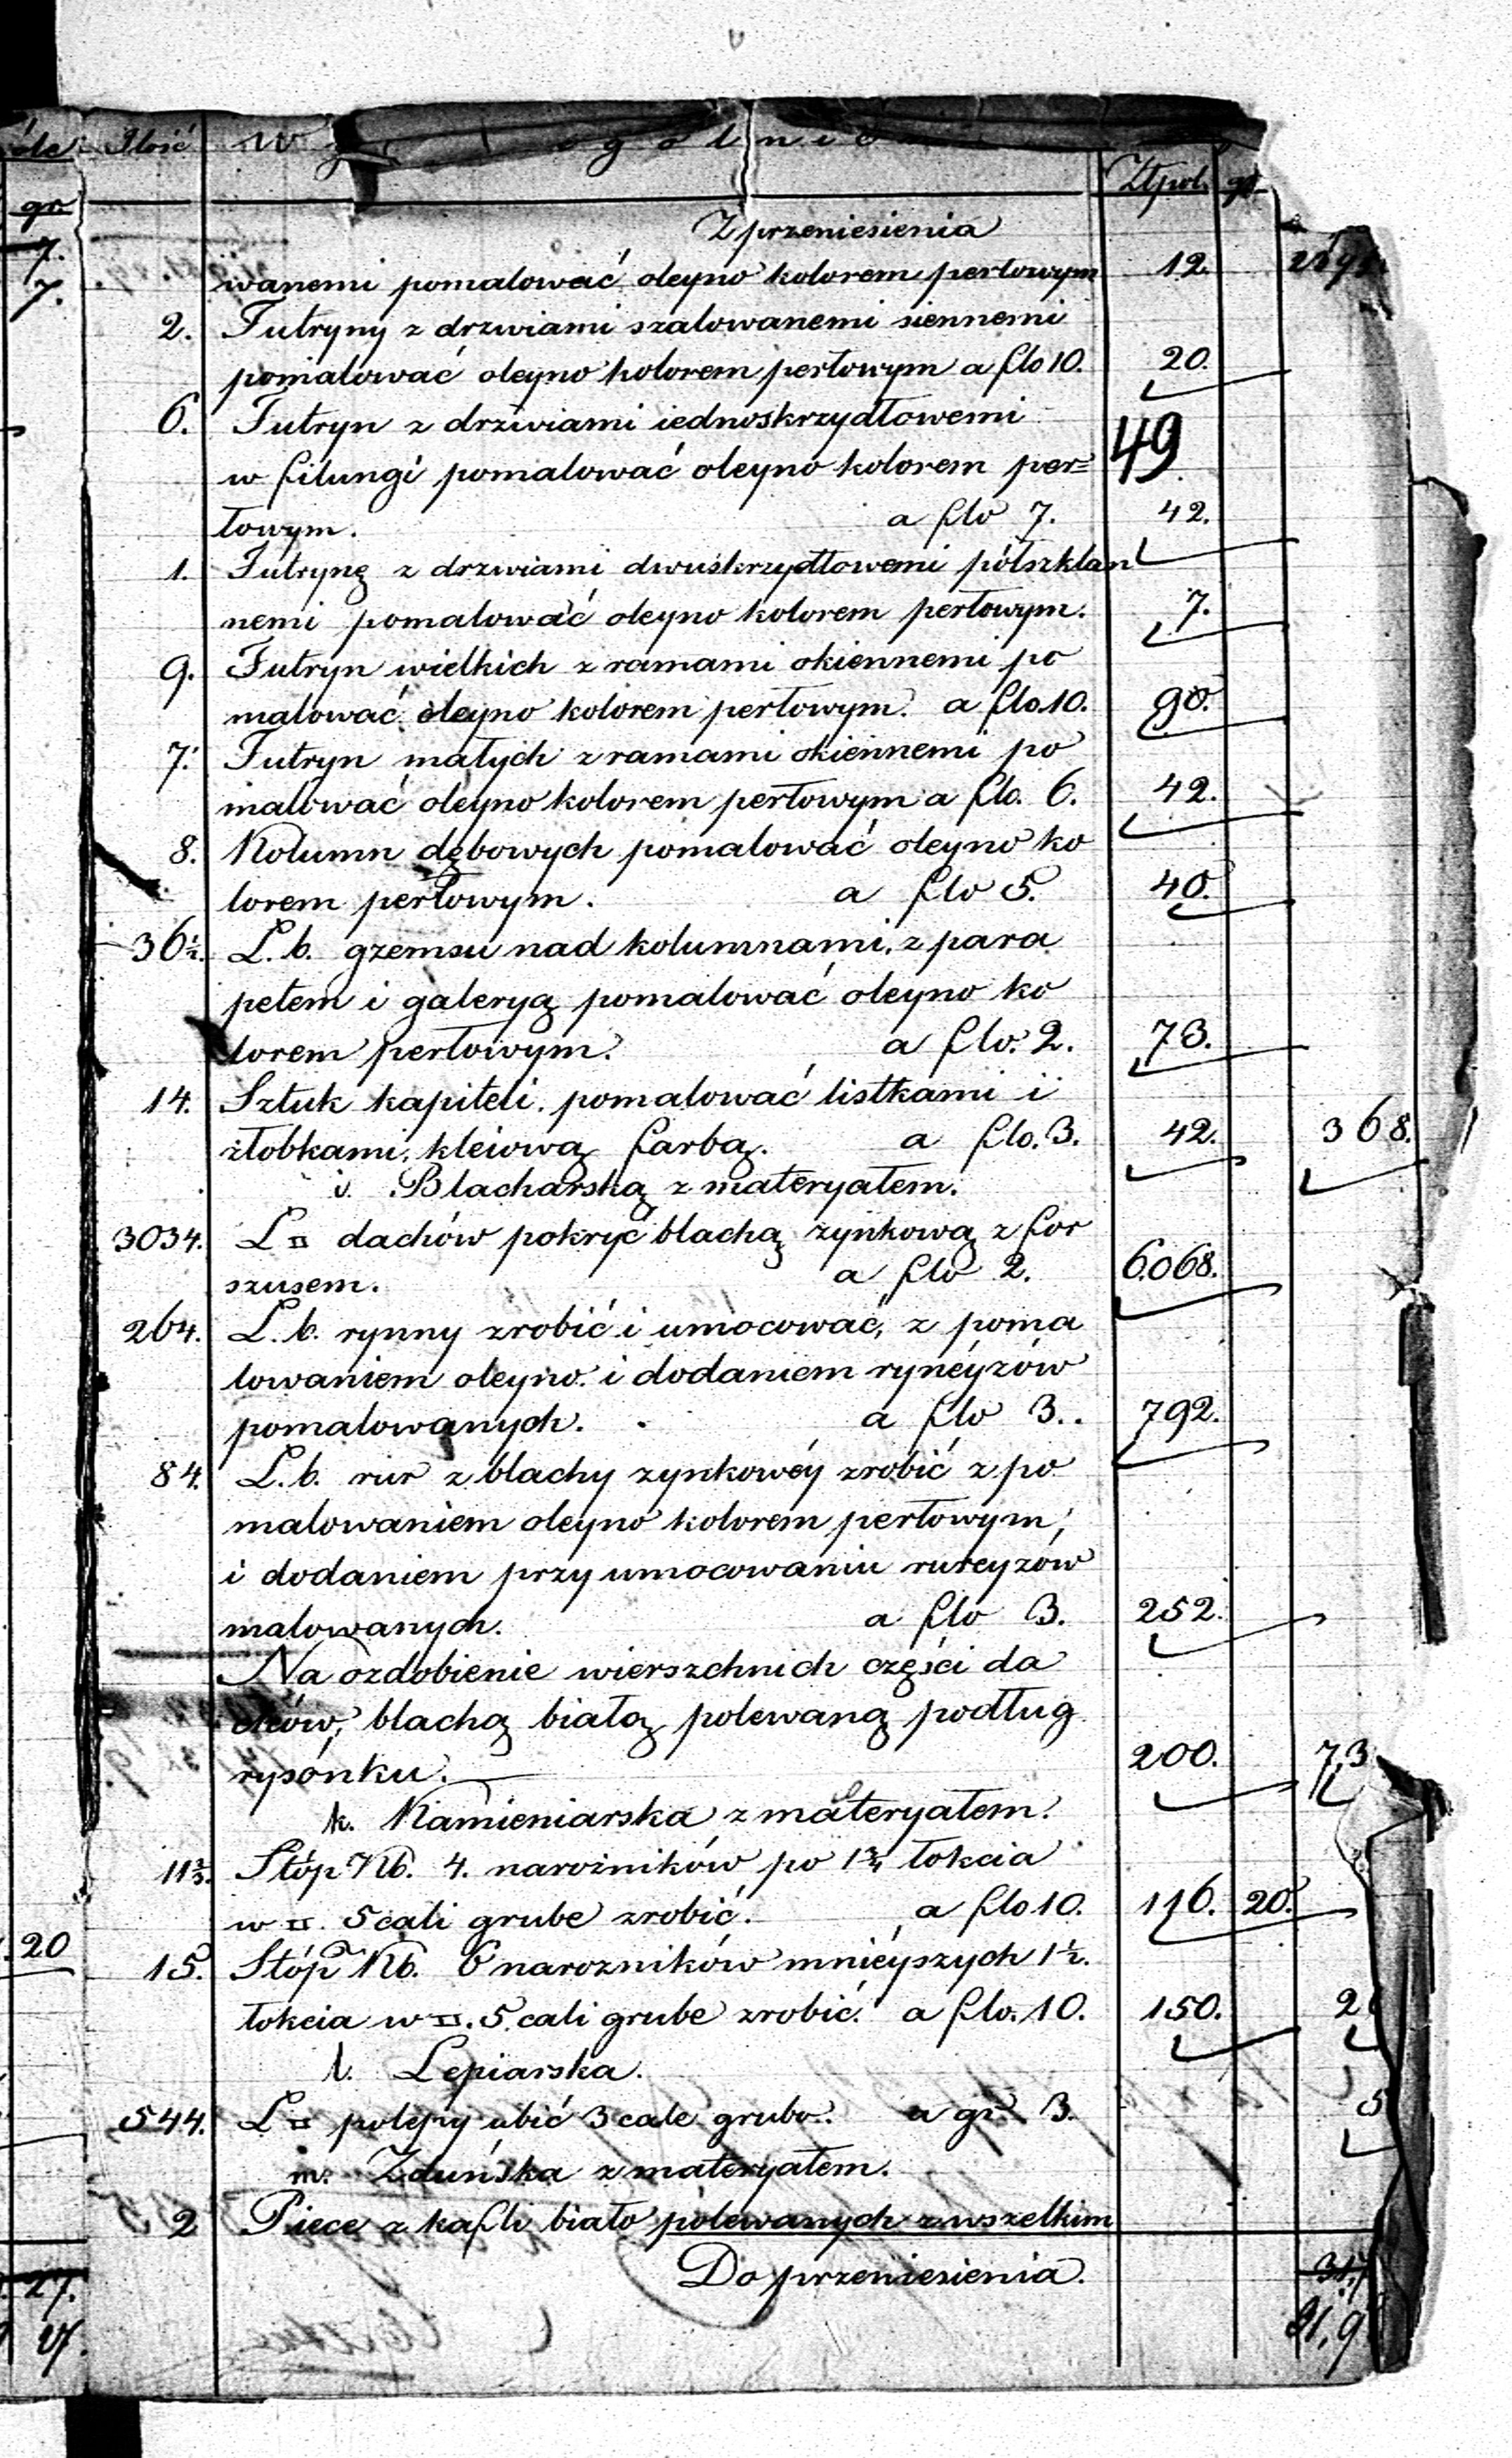 Ilość w ogólnie
Złpol. gr
Z przeniesienia
wanemi pomalować oleyno kolorem perłowym 12.
2. Futryny z drzwiami szalowanemi siennemi
pomalować oleyno kolorem perłowym a flo 10. 20.
6. Futryn z drzwiami iednoskrzydłowemi
w filungi pomalować oleyno kolorem per= 49
łowym. a flo 7. 42.
1. Futrynę z drzwiami dwuskrzydłowemi pólszklan
nemi pomalować oleyno kolorem perłowym. 7.
9. Futryn wielkich z ramami okiennemi po
malować oleyno kolorem perłowym. a flo. 10. 90.
7. Futryn małych z ramami okiennemi po
malować oleyno kolorem perłowym a flo. 6. 42.
8. Kolumn dębowych pomalować oleyno ko
lorem perłowym. a flo 5. 40.
36½. Ł. b. gzemsu nad kolumnami, z para
petem i galeryą pomalować oleyno ko
lorem perłowym. a flo. 2. 73.
14. Sztuk kapiteli pomalować listkami i
żłobkami, kleiową farbą. a flo. 3. 42. 368.
i. Blacharską z materyałem.
3034. Ł □ dachów pokryć blachą zynkową z for
szusem. a flo 2. 6.068.
264. Ł. b. rynny zrobić i umocować, z poma
lowaniem oleyno. i dodaniem ryneyzów
pomalowanych. a flo 3.. 792.
84. Ł. b. rur z blachy zynkowéy zrobić z po
malowaniem oleyno kolorem perłowym,
i dodaniem przy umocowaniu rureyzów
malowanych. a flo 3. 252.
Na ozdobienie wierszchnich części da
chów, blachą białą polewaną podług
rysónku. 200. 7,3
k. Kamieniarska z materyałem.
11⅔. Stóp Kb. 4. narożników po 1¾ łokcia
w □. 5 cali grube zrobić. a flo 10. 116. 20.
15. Stóp Kb. 6 narozników mniéyszych 1½.
łokcia w □. 5 cali grube zrobić. a flo. 10. 150. 2
l. Lepiarska.
544. Ł □ polepy ubić 3 cale grubo. a gr. 3. 5
m. Zduńska z materyałem.
2 Piece z kafli biało polewanych z wszelkim
Do przeniesienia.